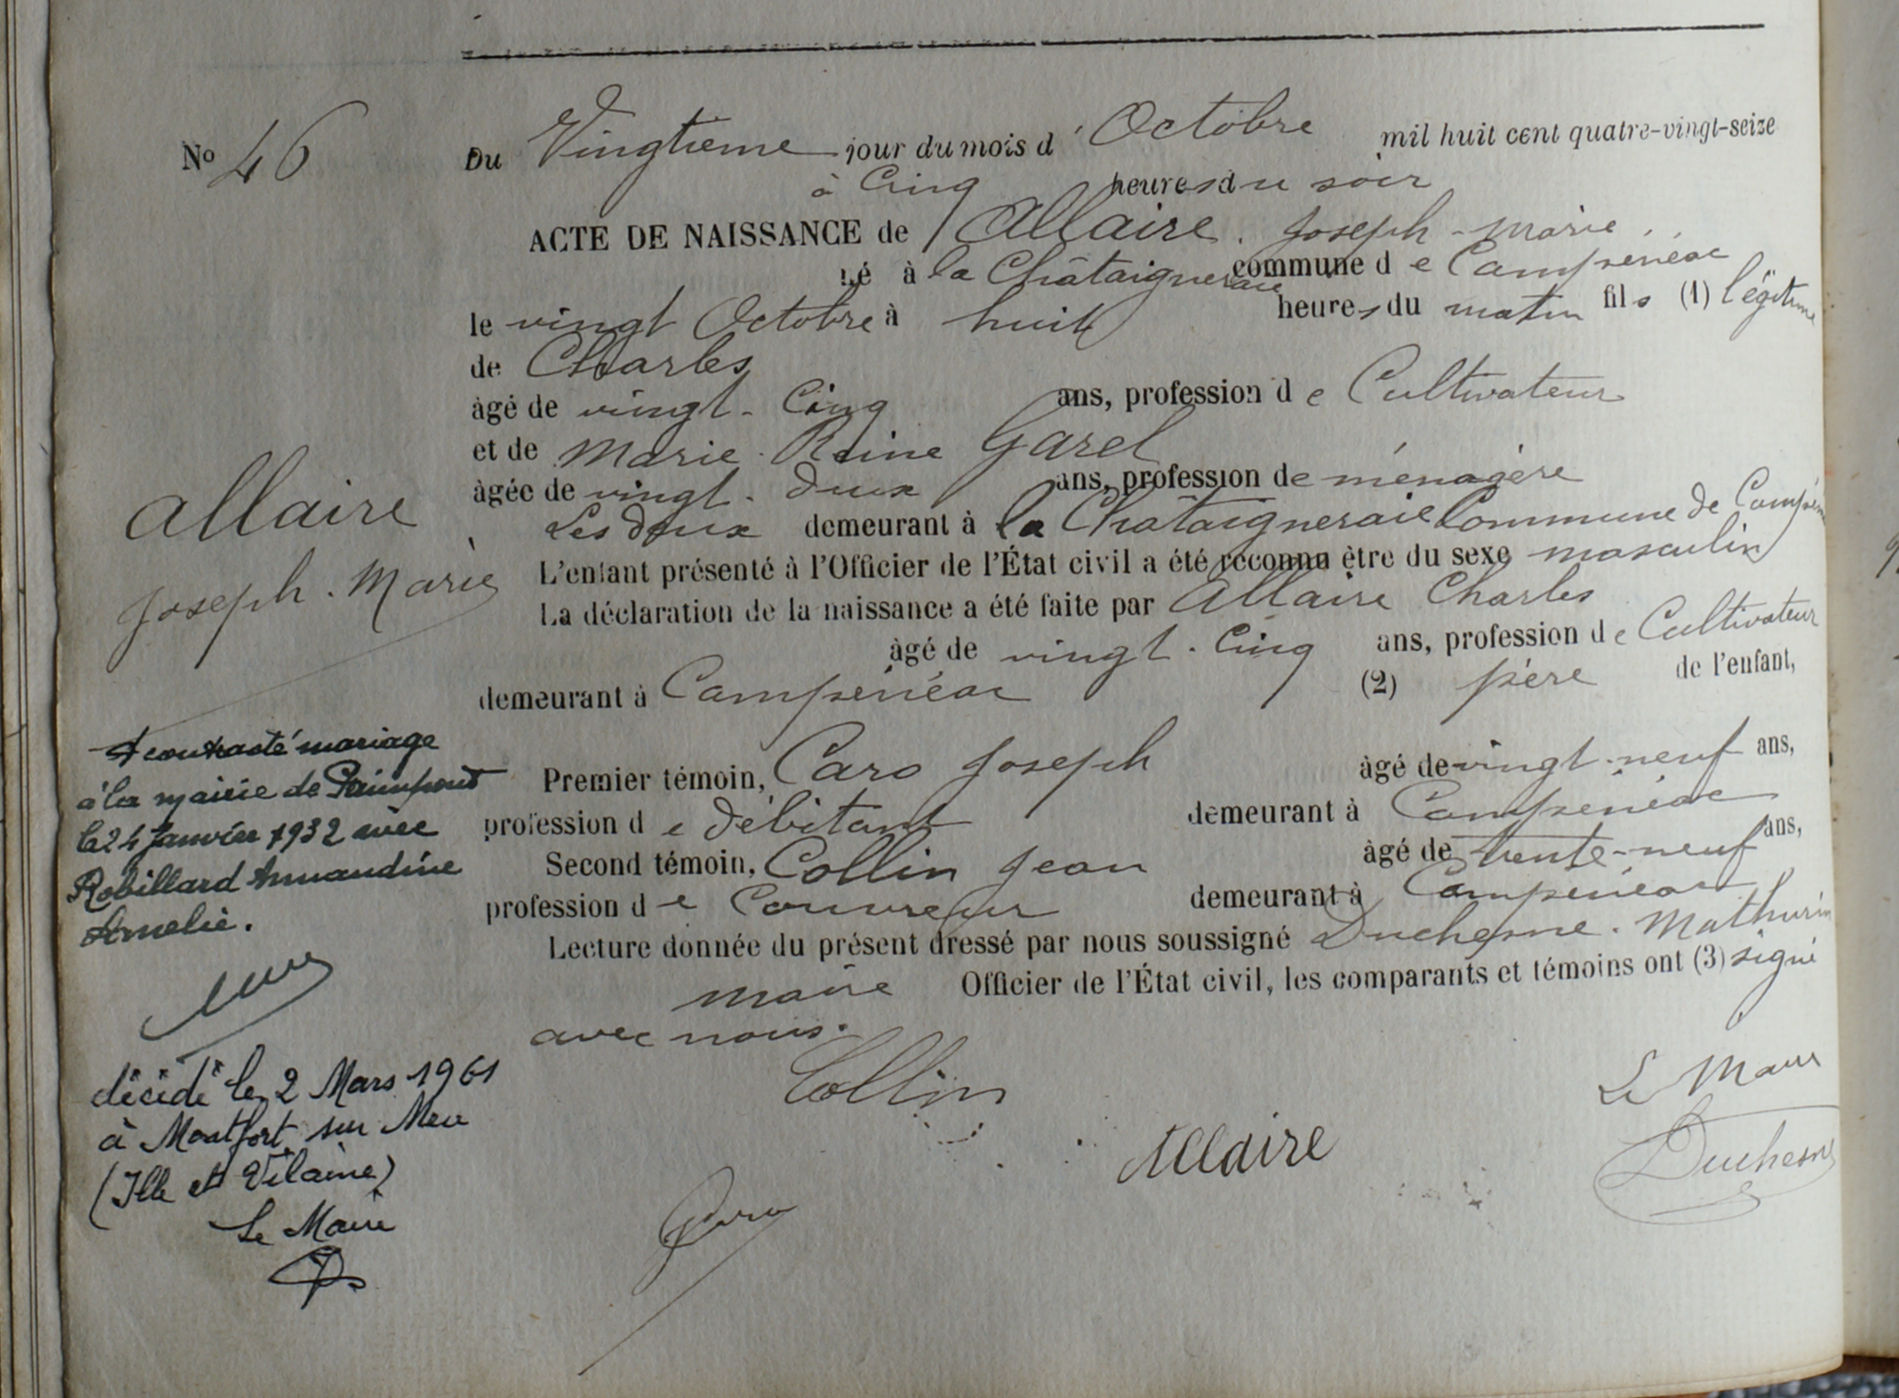 No 46
Du Vingtième jour du mois d'Octobre mil huit cent quatre-vingt-seize
à Cinq heures du soir
ACTE DE NAISSANCE de Allaire. Joseph-Marie.
né à la Châtaigneraie commune de Campénéac
le vingt Octobre à huit heures du matin fils (1) légitime
de Charles
âgé de vingt-Cinq ans, profession de Cultivateur
et de Marie-Reine Garel
âgée de vingt-deux ans, profession de ménagère
Les deux demeurant à la Châtaigneraie Commune de
L'enfant présenté à l'Officier de l'État civil a été reconnu être du sexe masculin
La déclaration de la naissance a été faite par Allaire Charles
âgé de vingt-Cinq ans, profession de Cultivateur
demeurant à Campénéac (2) père de l'enfant,
Premier témoin, Caro Joseph âgé de vingt-neuf ans,
profession de débitant demeurant à Campénéac
Second témoin, Collin Jean âgé de trente-neuf ans,
profession de Couvreur demeurant à Campénéac
Lecture donnée du présent dressé par nous soussigné Duchesne. Mathurin
maire Officier de l'État civil, les comparants et témoins ont (3) signé
avec nous.
Collin
Le Maire
Allaire
Duchesne
Caro
Allaire
Joseph-Marie
A contracté mariage
à la mairie de Paimpont
le 24 Janvier 1932 avec
Robillard Armandine
Amelie.
décédé le 2 Mars 1961
à Montfort sur Meu
(Ille et Vilaine)
Le Maire